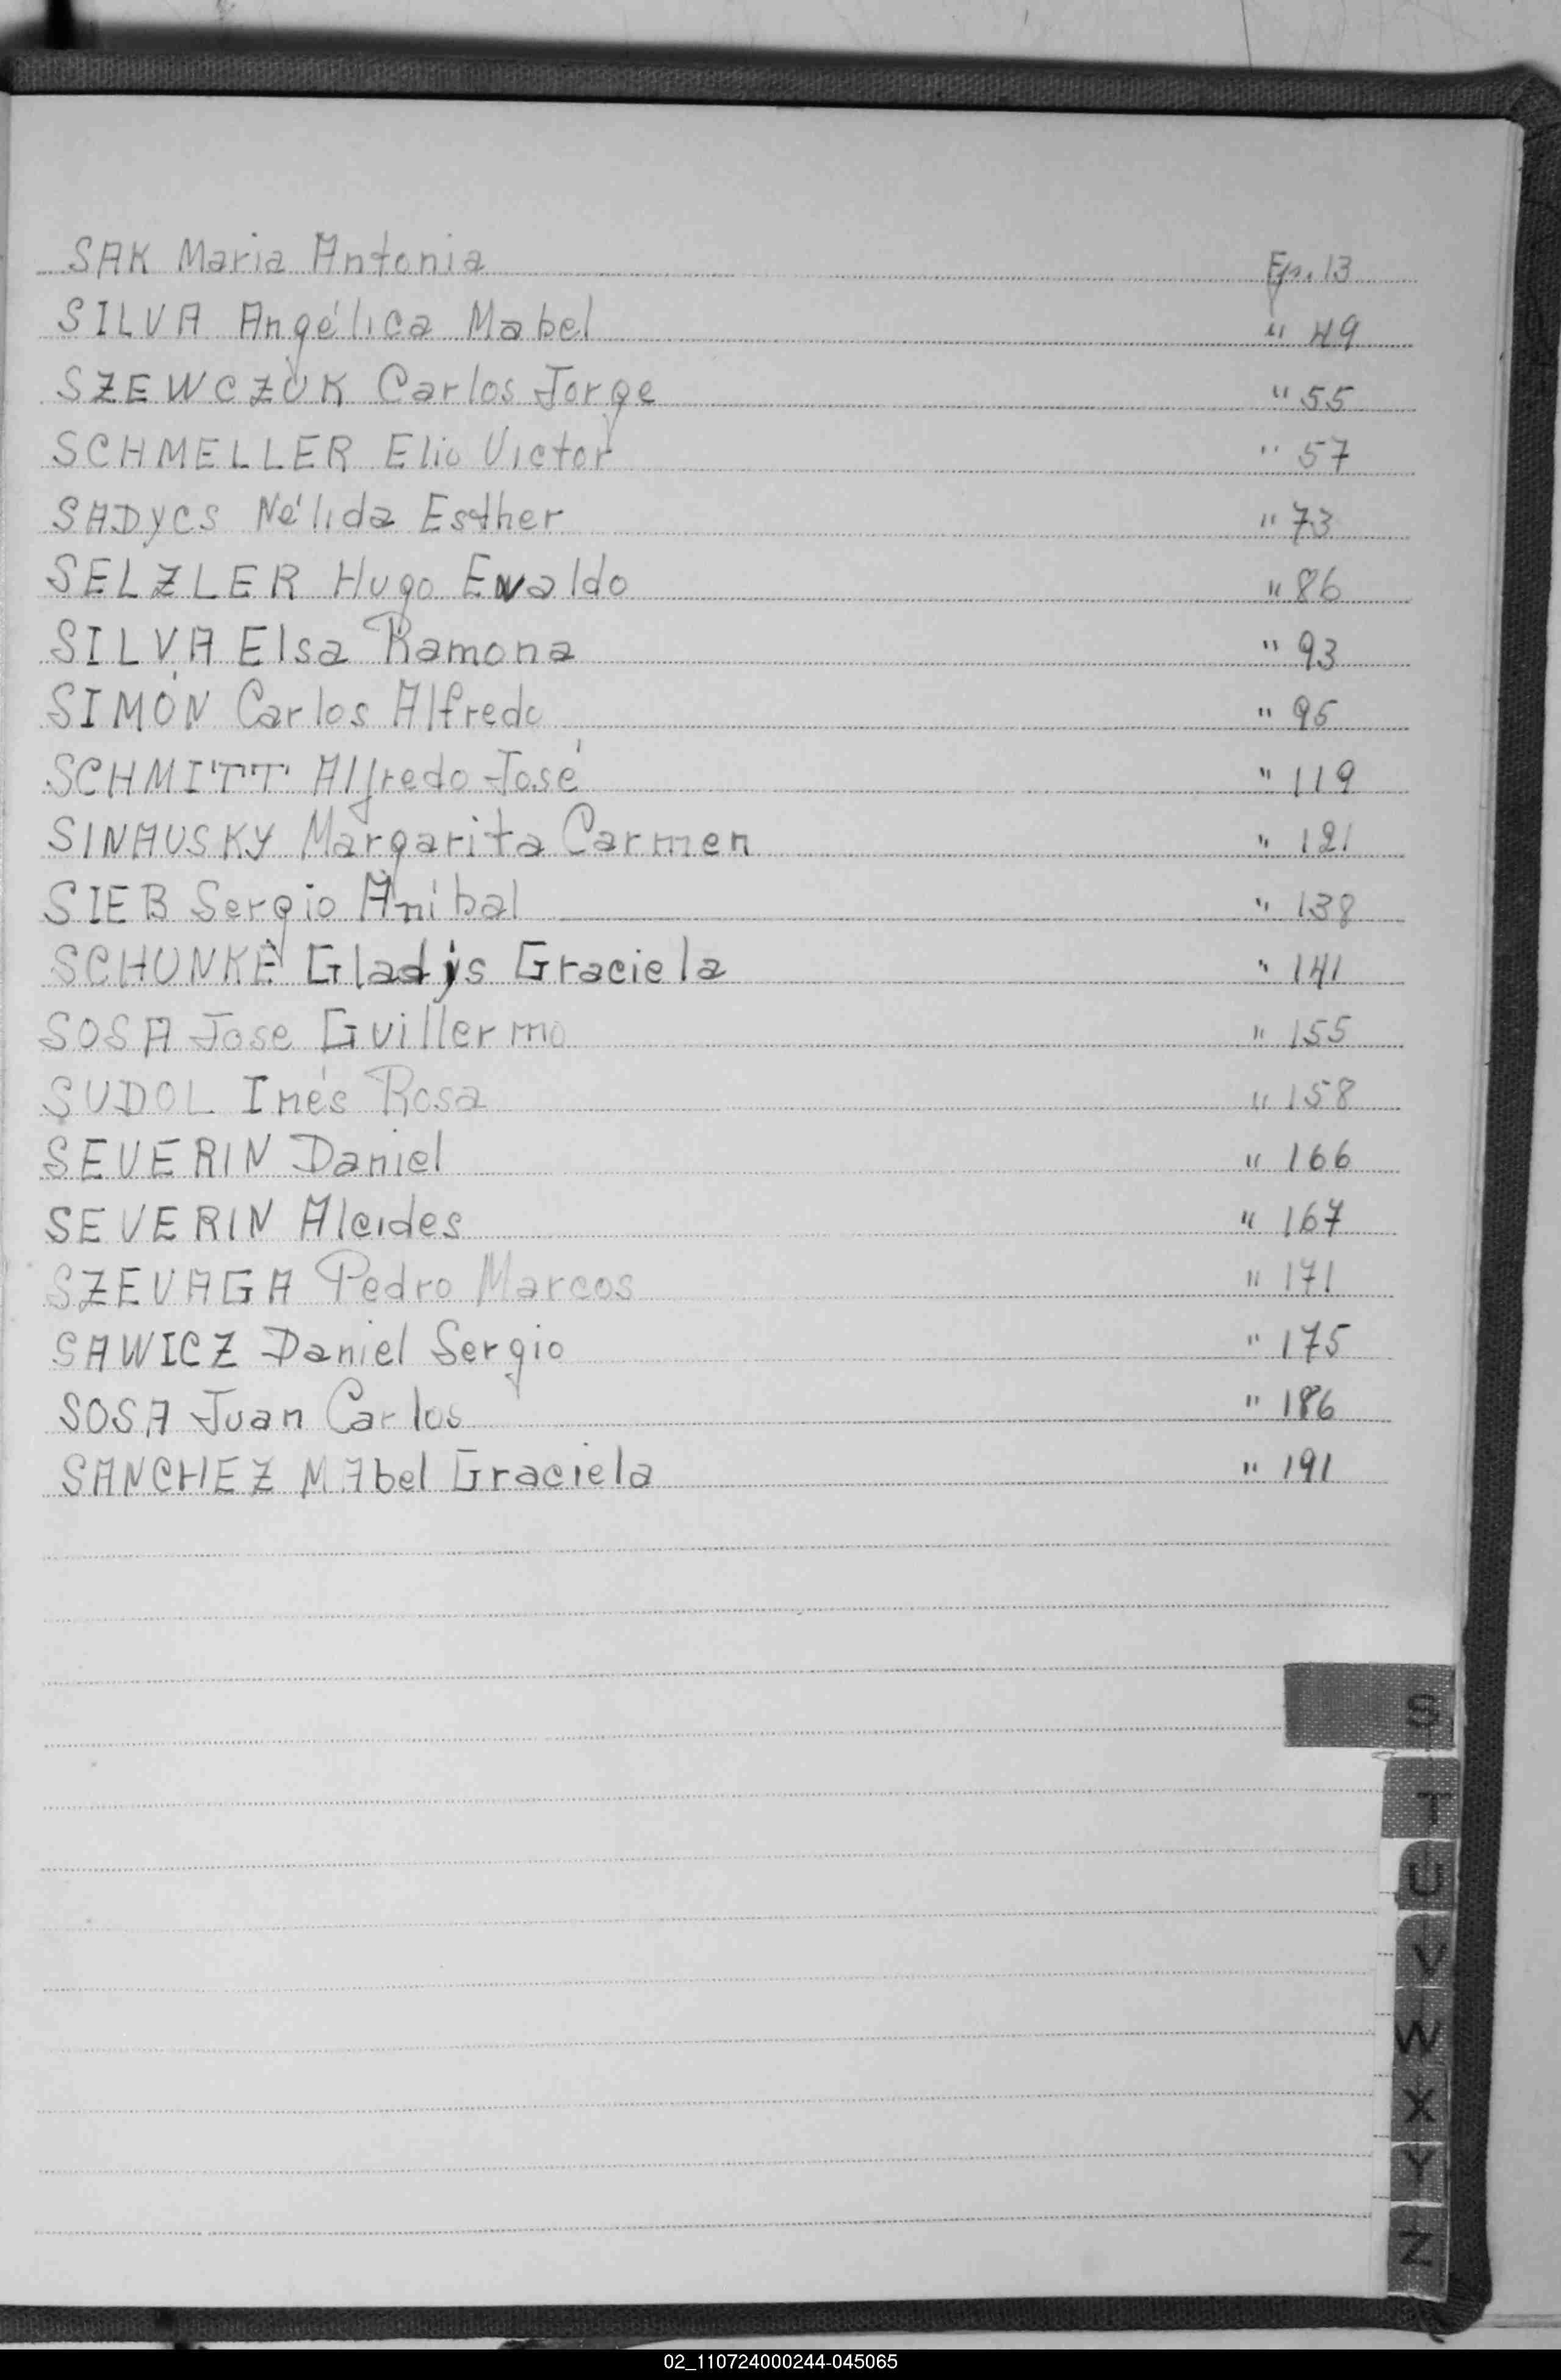 SAK Maria Antonia Fjs. 13
SILVA Angélica Mabel " 49
SZEWCZUK Carlos Jorge " 55
SCHMELLER Elio Victor " 57
SADYCS Nélida Esther " 73
SELZLER Hugo Ewaldo " 86
SILVA Elsa Ramona " 93
SIMÓN Carlos Alfredo " 95
SCHMITT Alfredo José " 119
SINAUSKY Margarita Carmen " 121
SIEB Sergio Anibal " 138
SCHUNKE Gladys Graciela " 141
SOSA Jose Guillermo " 155
SUDOL Inés Rosa " 158
SEVERIN Daniel " 166
SEVERIN Alcides " 167
SZEVAGA Pedro Marcos " 171
SAWICZ Daniel Sergio " 175
SOSA Juan Carlos " 186
SANCHEZ MAbel Graciela " 191
S
T
U
V
W
X
Y
Z
02_110724000244-045065